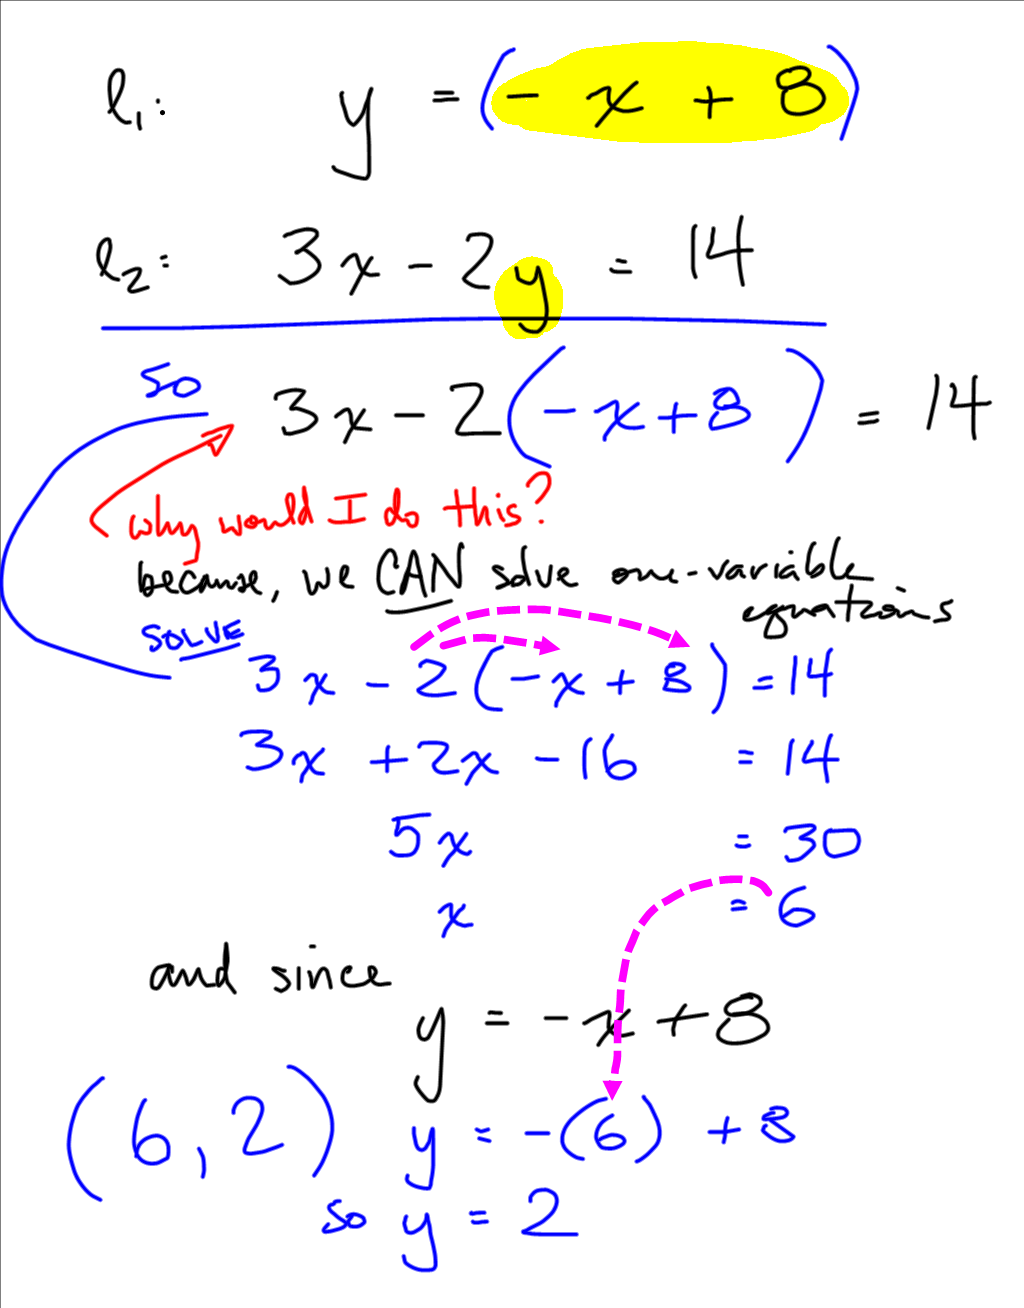 l₁: y = (- x + 8)
l₂: 3x - 2y = 14
so 3x - 2(-x+8) = 14
why would I do this?
because, we CAN solve one-variable
equations
SOLVE
3x - 2(-x + 8) = 14
3x + 2x - 16 = 14
5x = 30
x = 6
and since
y = -x + 8
(6, 2) y = -(6) + 8
so y = 2